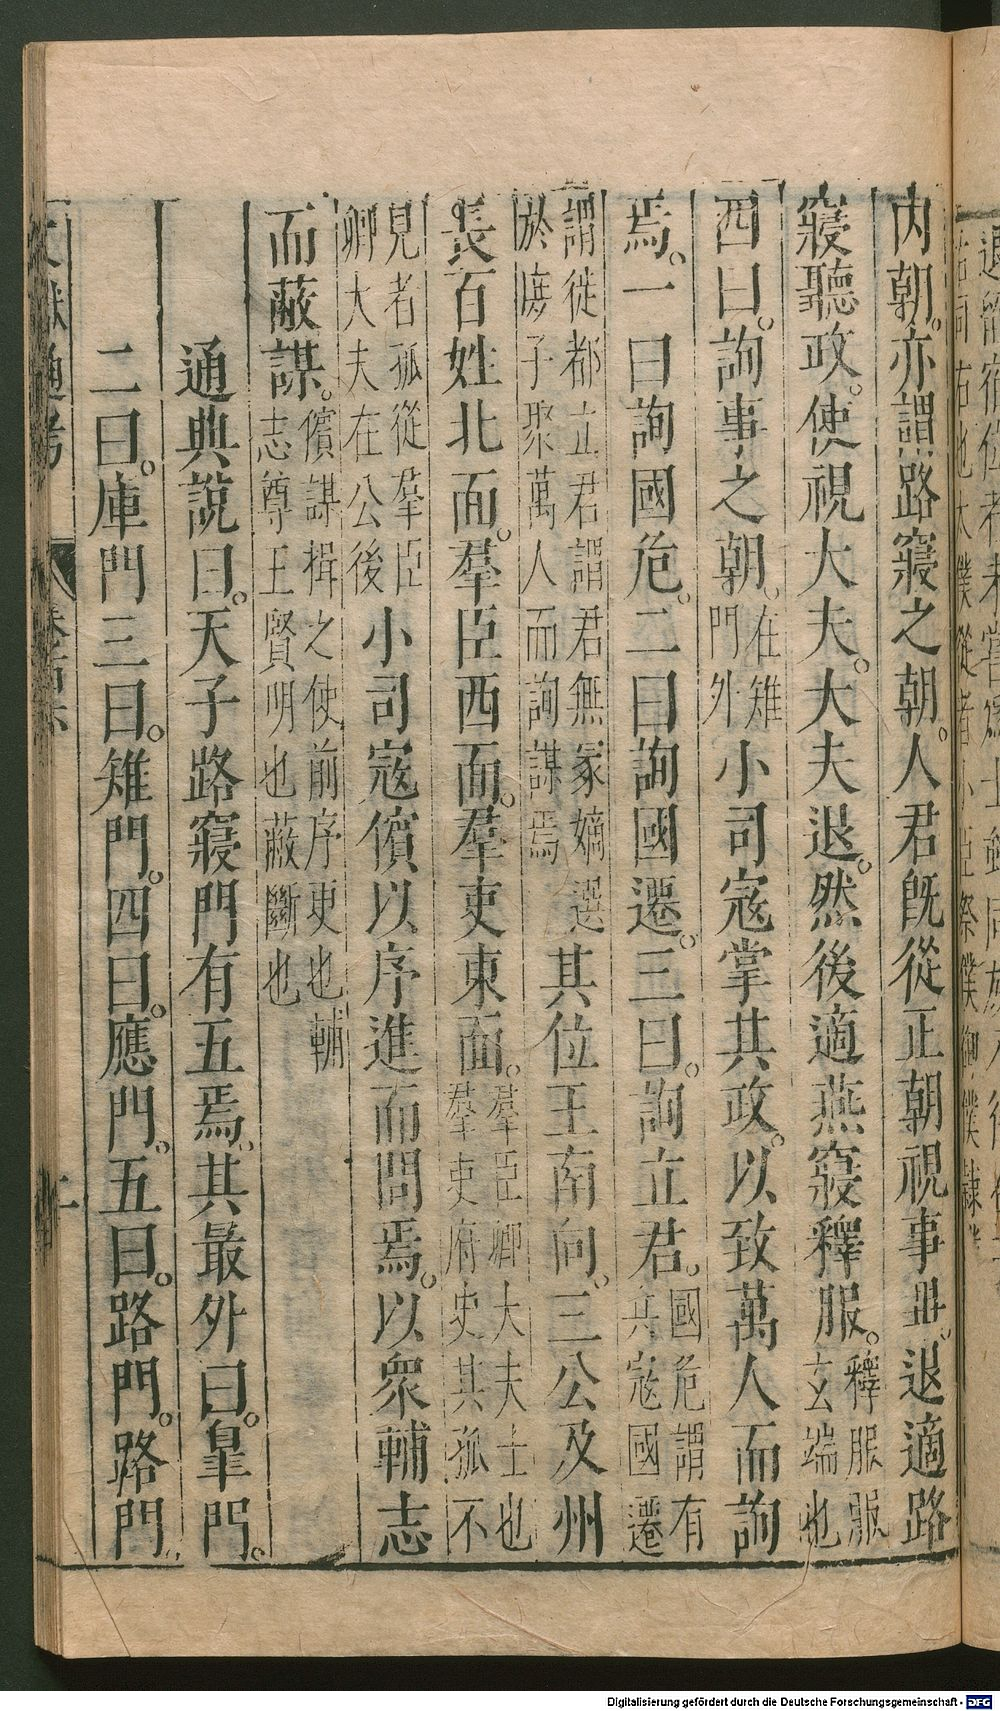 内朝。亦謂路寢之朝。人君旣從正朝視事畢。退適路
寢聽政。使視大夫。大夫退。然後適燕寢釋服。釋服服玄端也
四曰。詢事之朝。在雉門外小司寇掌其政。以致萬人而詢
焉。一曰詢國危。二曰詢國遷。三曰。詢立君。國危謂有兵寇國遷
謂徙都立君謂君無冢嫡選於庶子聚萬人而詢謀焉其位王南向。三公及州
長百姓北面。羣臣西面。羣吏東面。羣臣卿大夫士也羣吏府史其孤不
見者孤從羣臣卿大夫在公後小司寇儐以序進而問焉。以衆輔志
而蔽謀。儐謀揖之使前序更也輔志尊王賢明也蔽斷也
通典說曰。天子路寢門有五焉。其最外曰。臯門。
二曰。庫門三曰。雉門。四曰。應門。五曰。路門。路門。
文獻通考
Digitalisierung gefördert durch die Deutsche Forschungsgemeinschaft - DFG